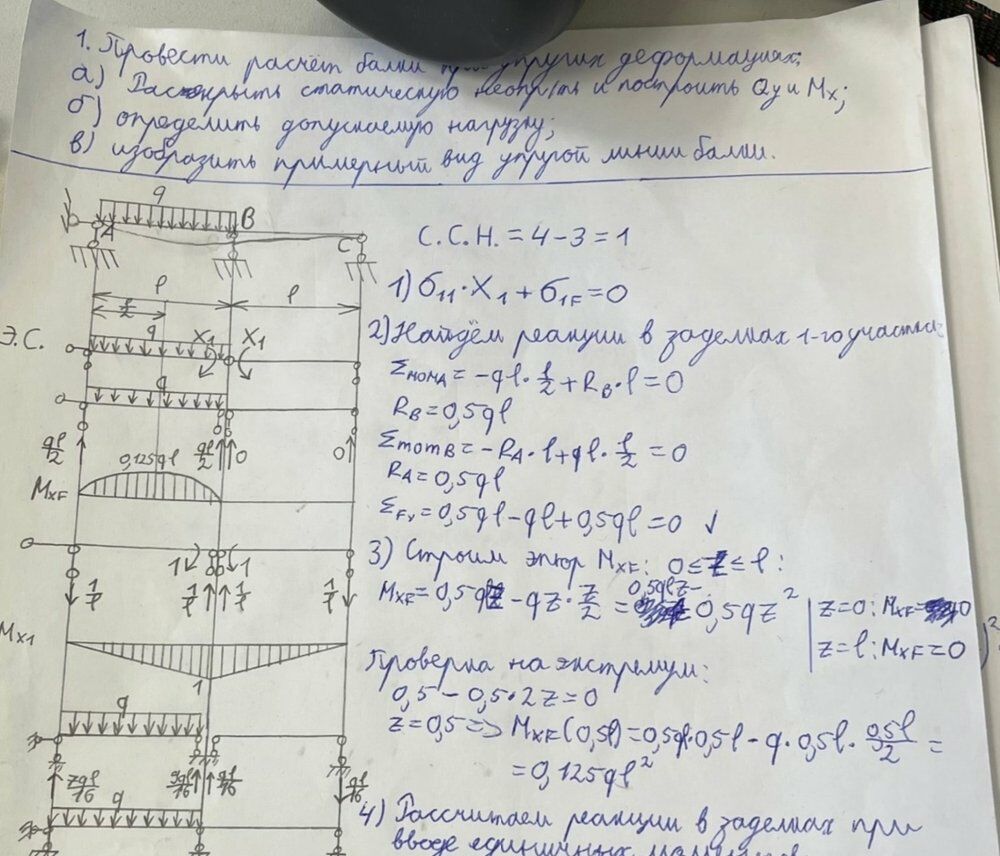 1. Провести расчёт балки упругих деформациях;
а) Раскрыть статическую неопр-ть и построить Qy и Mx;
б) определить допускаемую нагрузку;
в) изобразить примерный вид упругой линии балки.
q
A B C
С.С.Н. = 4-3=1
l l
l/2
1) δ11·X1 + δ1F=0
Э.С. q X1 X1
2) Найдём реакции в заделках 1-го участка:
ΣmomA = -ql·l/2 + RB·l = 0
q
RB = 0,5ql
ql/2 ql/2 0 0
ΣmomB = -RA·l + ql·l/2 = 0
RA = 0,5ql
0,125ql
MXF
ΣFy = 0,5ql - ql + 0,5ql = 0 ✓
3) Строим эпюр MXF: 0≤z≤l:
1 1
1/l 1/l 1/l 1/l
MXF = 0,5qlz - qz·z/2 = 0,5qlz - 0,5qz²
z=0: MXF=0
z=l: MXF=0
Mx1
1
Проверка на экстремум:
0,5 - 0,5·2z=0
z=0,5 => MXF(0,5l)=0,5ql·0,5l - q·0,5l·0,5l/2 =
= 0,125ql²
q
7ql/16 9ql/16 ql/16 ql/16
q
4) Рассчитаем реакции в заделках при
вводе единичных